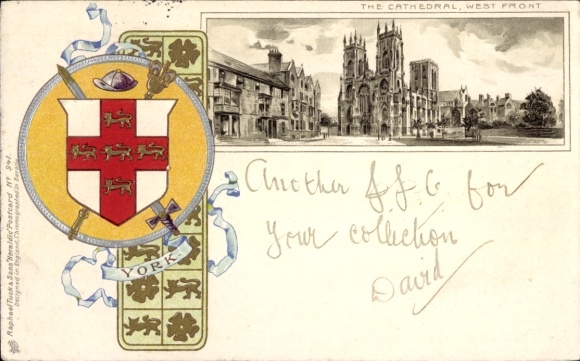 THE CATHEDRAL, WEST FRONT
YORK
Another J.J.C. for
your collection
David
Raphael Tuck & Sons "Heraldic" Postcard Nº 941.
Designed in England, Chromographed in Saxony.